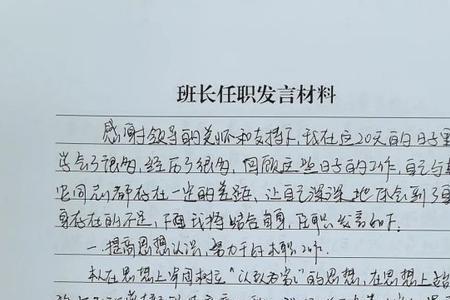 班长任职发言材料
感谢领导的关怀和支持下,我在这20天的日子里
学会了很多,经历了很多,回顾这些日子的工作,自己与
同志们都存在一定的差距,让自己深深地体会到了
身存在的不足,下面我将结合自身,任职发言如下。
一.提高思想认识,努力干好本职工作。
从在思想上牢固树立“以队为家”的思想,在思想上